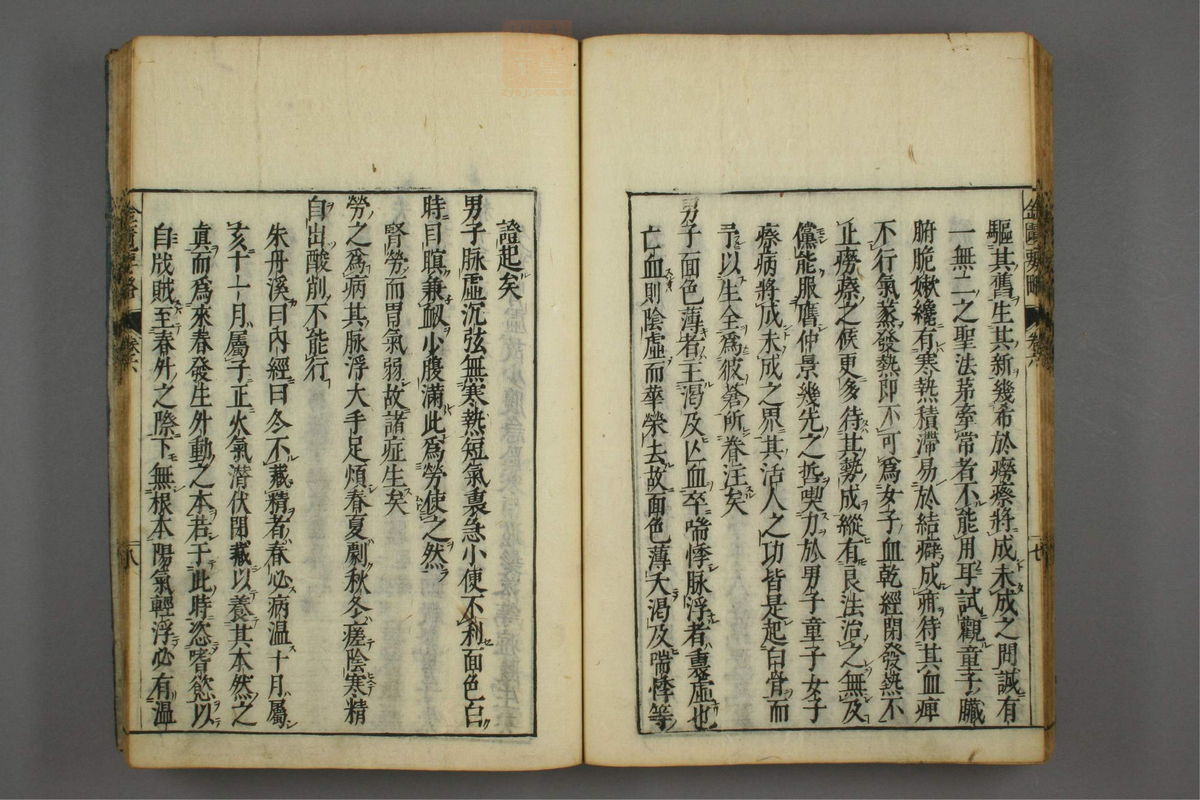 驅其舊生其新幾希於癆瘵將成未成之間誠有
一無二之聖法茅牽常者不能用耳試觀童子臟
腑脆嫩纔有寒熱積滯易於結癖成疳待其血痺
不行氣蒸發熱即不可爲女子血乾經閉發熱不
止癆瘵之候更多待其勢成縱有良法治之無及
儻能服膺仲景幾先之哲喫力於男子童子女子
瘵病將成未成之界其活人之功皆是起白骨而
予以生全爲彼蒼所眷注矣
男子面色薄者主渴及亡血卒喘悸脈浮者裏虛也
亡血則陰虛而華榮去故面色薄大渴及喘悸等
金匱要略
卷六
七
證起矣
男子脉虛沉弦無寒熱短氣裏急小便不利面色白
時目瞑兼衂少腹滿此爲勞使之然
腎勞而胃氣弱故諸症生矣
勞之爲病其脉浮大手足煩春夏劇秋冬瘥陰寒精
自出酸削不能行
朱丹溪曰內經曰冬不藏精者春必病温十月屬
亥十一月屬子正火氣潜伏閉藏以養其本然之
真而爲來春發生升動之本若于此時恣嗜慾以
自戕賊至春升之際下無根本陽氣輕浮必有温
金匱要略
卷六
八